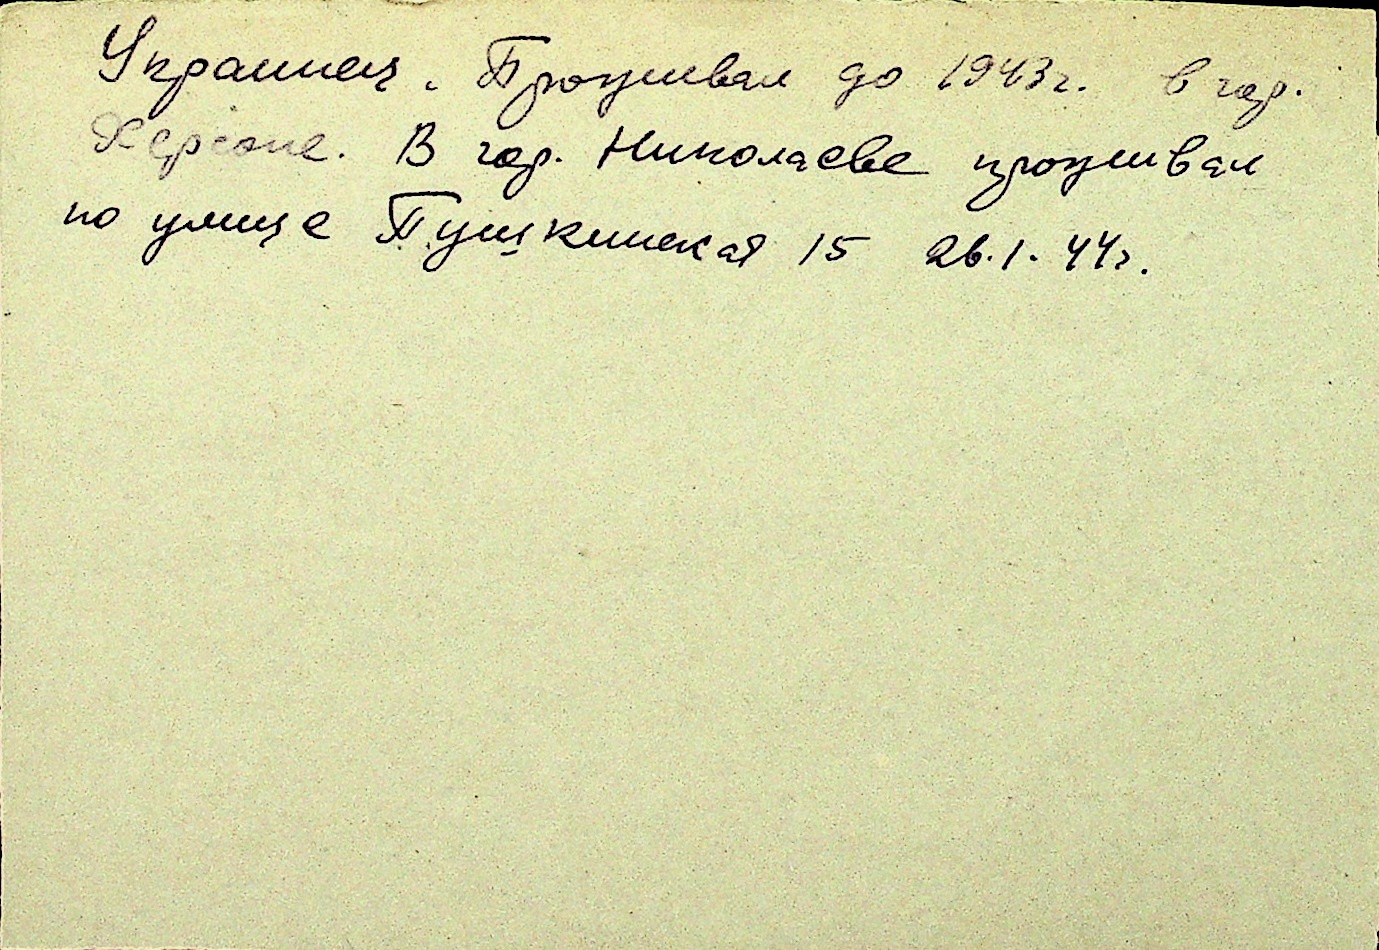 Украинец. Проживал до 1943г. в гор.
Херсоне. В гор. Николаеве проживал
по улице Пушкинская 15 26.1.44г.